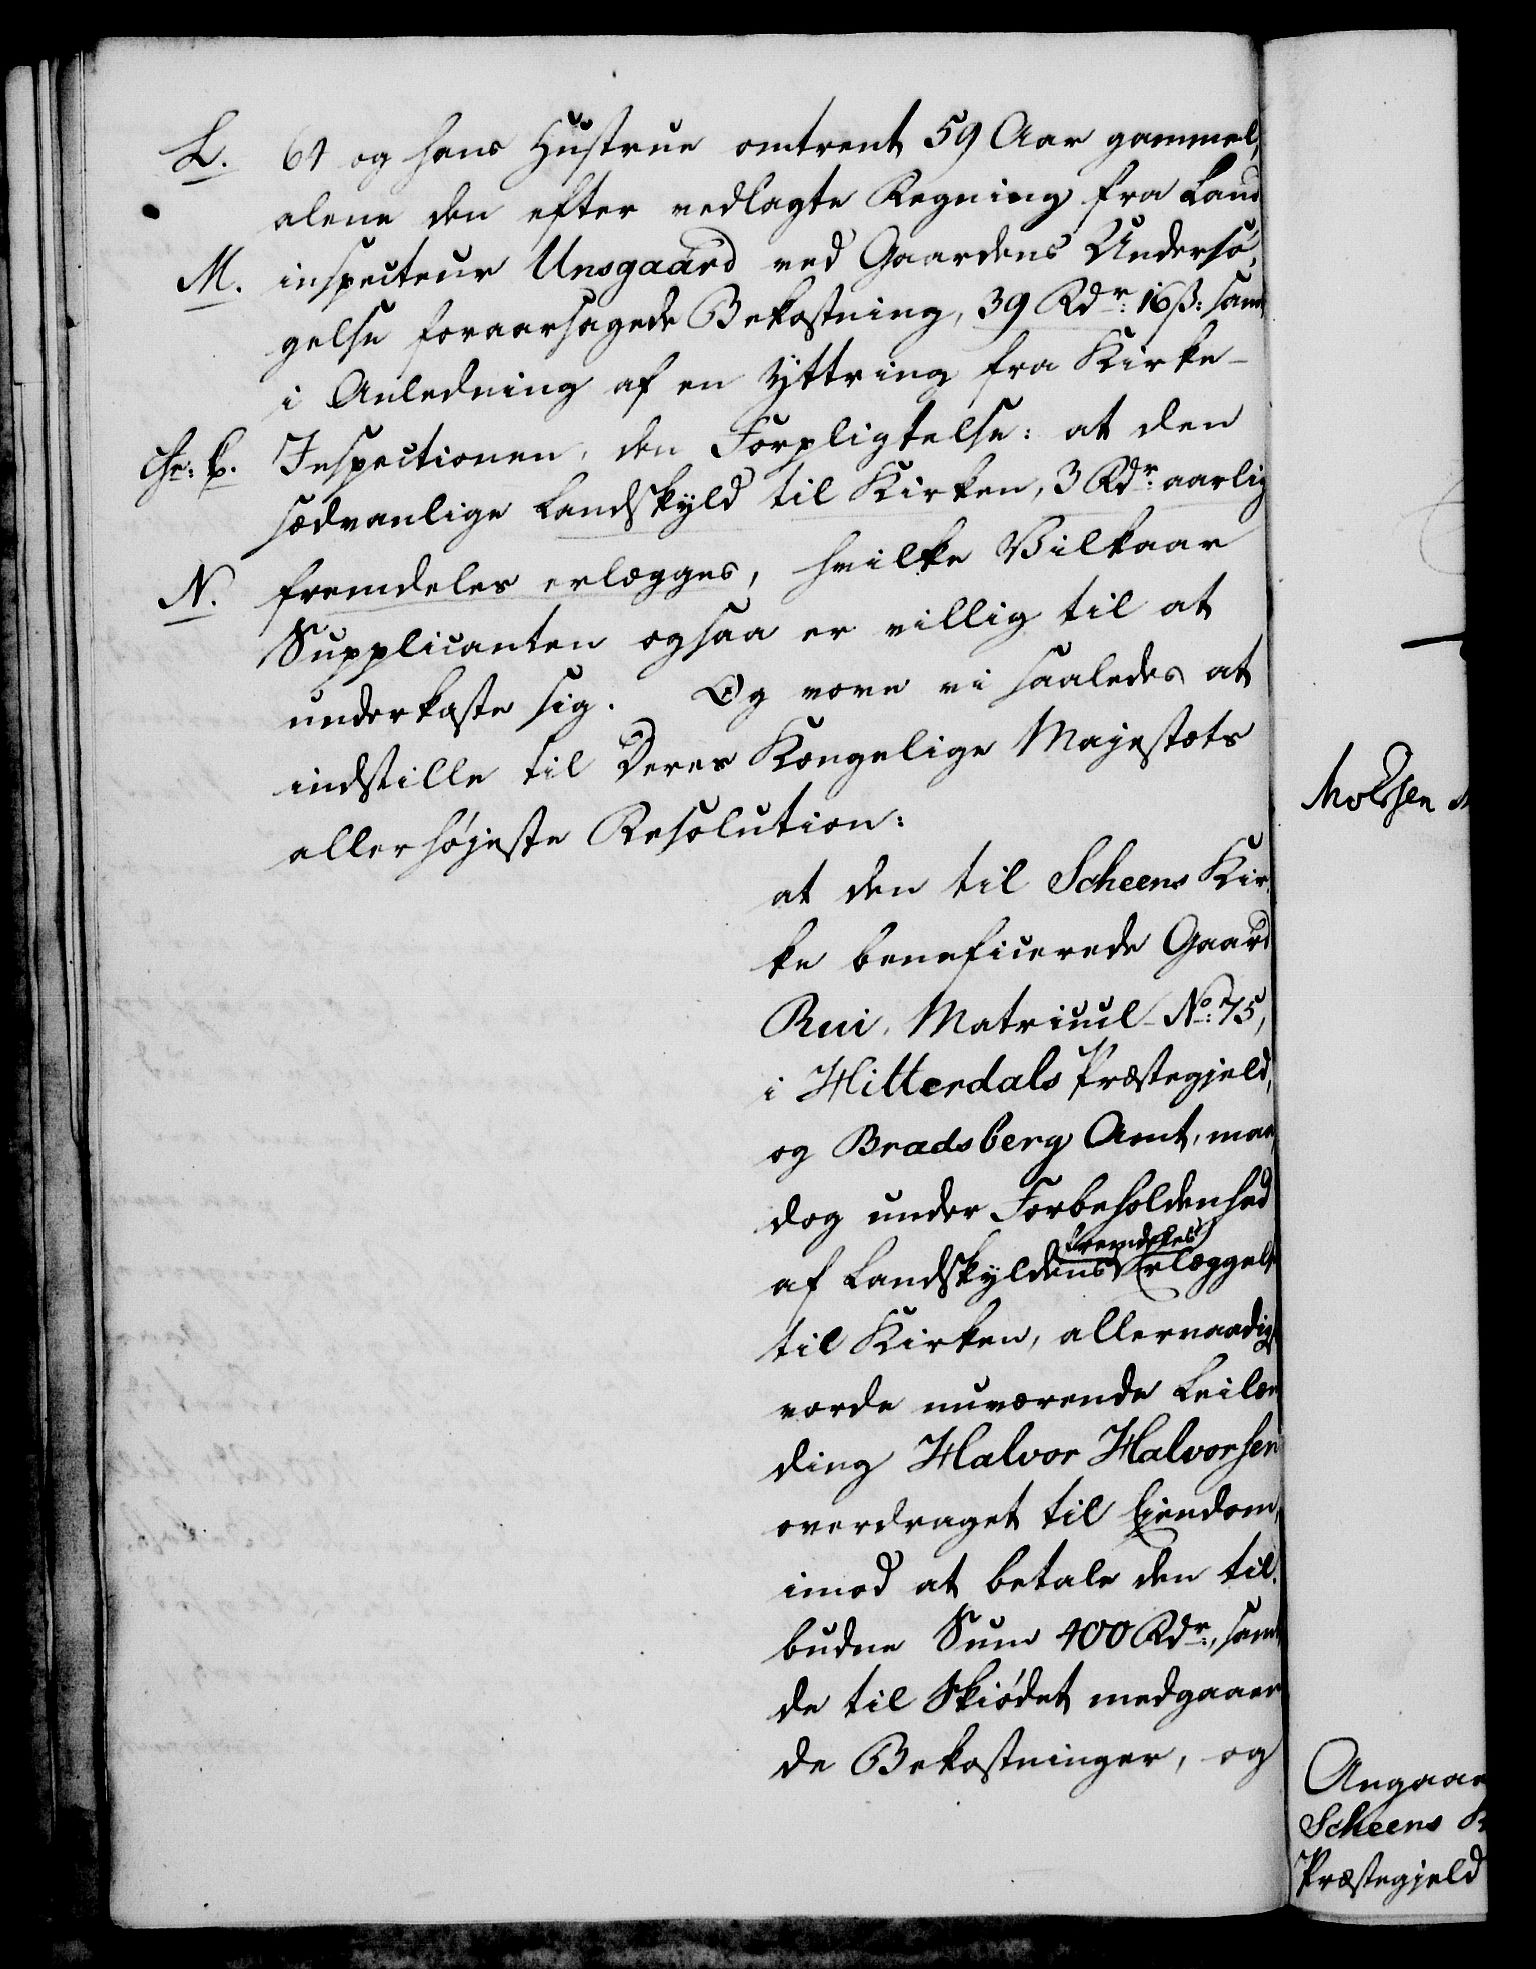 L. 61 og hans Hustrue omtrent 59 Aar gammel,
alene den efter vedlagte Regning fra Land
M. inspecteur Unsgaard ved Gaardens Undersø-
gelse foraarsagede Bekostning, 39 Rdr: 16 ß: samt
i Anledning af en Yttring fra Kirke-
Inspectionen, den Forpligtelse: at den
sædvanlige Landskyld til Kirken, 3 Rdr: aarlig
N. fremdeles erlægges, hvilke Vilkaar
Supplicanten ogsaa er villig til at
underkaste sig. Og vove vi saaledes at
indstille til Deres Kongelige Majestæts
allerhøjeste Resolution:
at den til Scheens Kir-
ke beneficerede Gaard
Rui, Matricul No: 75,
i Hitterdals Præstegjeld,
og Bradsberg Amt, maa,
dog under Forbeholdenhed
fremdeles
af Landskyldens Erlæggelse
til Kirken, allernaadigst
vorde nuværende Leilæn
ding Halvor Halvorsen
overdraget til Eiendom,
imod at betale den til-
budne Sum 400 Rdr:, samt
de til Skiødet medgaaen
de Bekostninger, og
Angaae
Scheens K
Præstegjeld